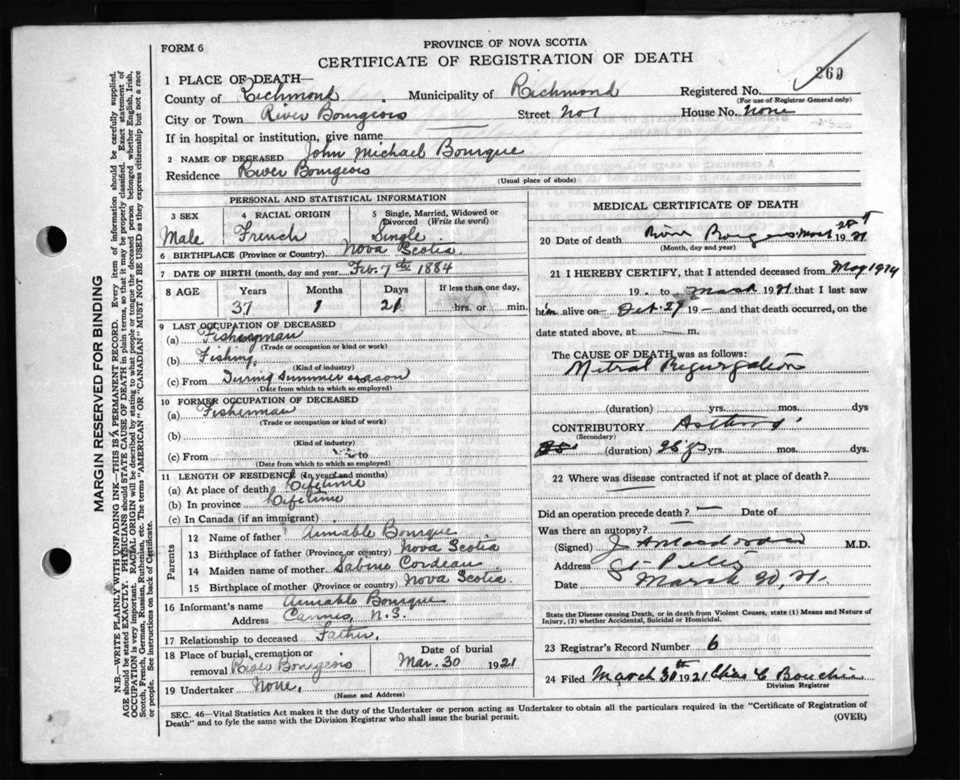 FORM 6
PROVINCE OF NOVA SCOTIA
CERTIFICATE OF REGISTRATION OF DEATH
260
1 PLACE OF DEATH—
County of Richmond Municipality of Richmond Registered No.
(For use of Registrar General only)
City or Town River Bourgeois Street No 1 House No. None
If in hospital or institution, give name
2 NAME OF DECEASED John Michael Bourque
Residence River Bourgeois
(Usual place of abode)
PERSONAL AND STATISTICAL INFORMATION
3 SEX Male
4 RACIAL ORIGIN French
5 Single, Married, Widowed or Divorced (Write the word) Single
6 BIRTHPLACE (Province or Country) Nova Scotia
7 DATE OF BIRTH (month, day and year) Feb. 7th 1884
8 AGE Years Months Days If less than one day,
37 1 21 hrs. or min.
9 LAST OCCUPATION OF DECEASED
(a)
(Trade or occupation or kind or work)
(b) Fishing
(Kind of industry)
(c) From During Summer season
(Date from which to which so employed)
10 FORMER OCCUPATION OF DECEASED
(a) Fisherman
(Trade or occupation or kind of work)
(b)
(Kind of industry)
(c) From to
(Date from which to which so employed)
11 LENGTH OF RESIDENCE (In years and months)
(a) At place of death Lifetime
(b) In province Lifetime
(c) In Canada (if an immigrant)
Parents
12 Name of father Amable Bourque
13 Birthplace of father (Province or country) Nova Scotia
14 Maiden name of mother Sabine Cordeau
15 Birthplace of mother (Province or country) Nova Scotia.
16 Informant's name Amable Bourque
Address N.S.
17 Relationship to deceased Father,
18 Place of burial, cremation or removal River Bourgeois
Date of burial Mar. 30 1921
19 Undertaker None,
(Name and Address)
MEDICAL CERTIFICATE OF DEATH
20 Date of death River 28 1921
(Month, day and year)
21 I HEREBY CERTIFY, that I attended deceased from May 1914
19 . to March 1921 that I last saw
him alive on 19 — and that death occurred, on the
date stated above, at — m.
The CAUSE OF DEATH was as follows:
Mitral Regurgitation
(duration) yrs. mos. dys
CONTRIBUTORY Asthma
(Secondary)
(duration) yrs. mos. dys.
22 Where was disease contracted if not at place of death?
Did an operation precede death? — Date of
Was there an autopsy?
(Signed) M.D.
Address St. Peters
Date March 30, 21.
State the Disease causing Death, or in death from Violent Causes, state (1) Means and Nature of
Injury, (2) whether Accidental, Suicidal or Homicidal.
23 Registrar's Record Number 6
24 Filed March 30th 1921 Chas C
Division Registrar
SEC. 46—Vital Statistics Act makes it the duty of the Undertaker or person acting as Undertaker to obtain all the particulars required in the "Certificate of Registration of
Death" and to fyle the same with the Division Registrar who shall issue the burial permit.
(OVER)
MARGIN RESERVED FOR BINDING
N.B.—WRITE PLAINLY WITH UNFADING INK—THIS IS A PERMANENT RECORD. Every item of information should be carefully supplied.
AGE should be stated EXACTLY. PHYSICIANS should STATE CAUSE OF DEATH in plain terms, so that it may be properly classified. Exact statement of
OCCUPATION is very important. RACIAL ORIGIN will be described by stating to what people or tongue the deceased person belonged whether English, Irish,
Scotch, French, German, Russian, Ruthenian, etc. The terms "AMERICAN" OR "CANADIAN" MUST NOT BE USED as they express citizenship but not a race
or people. See instructions on back of Certificate.